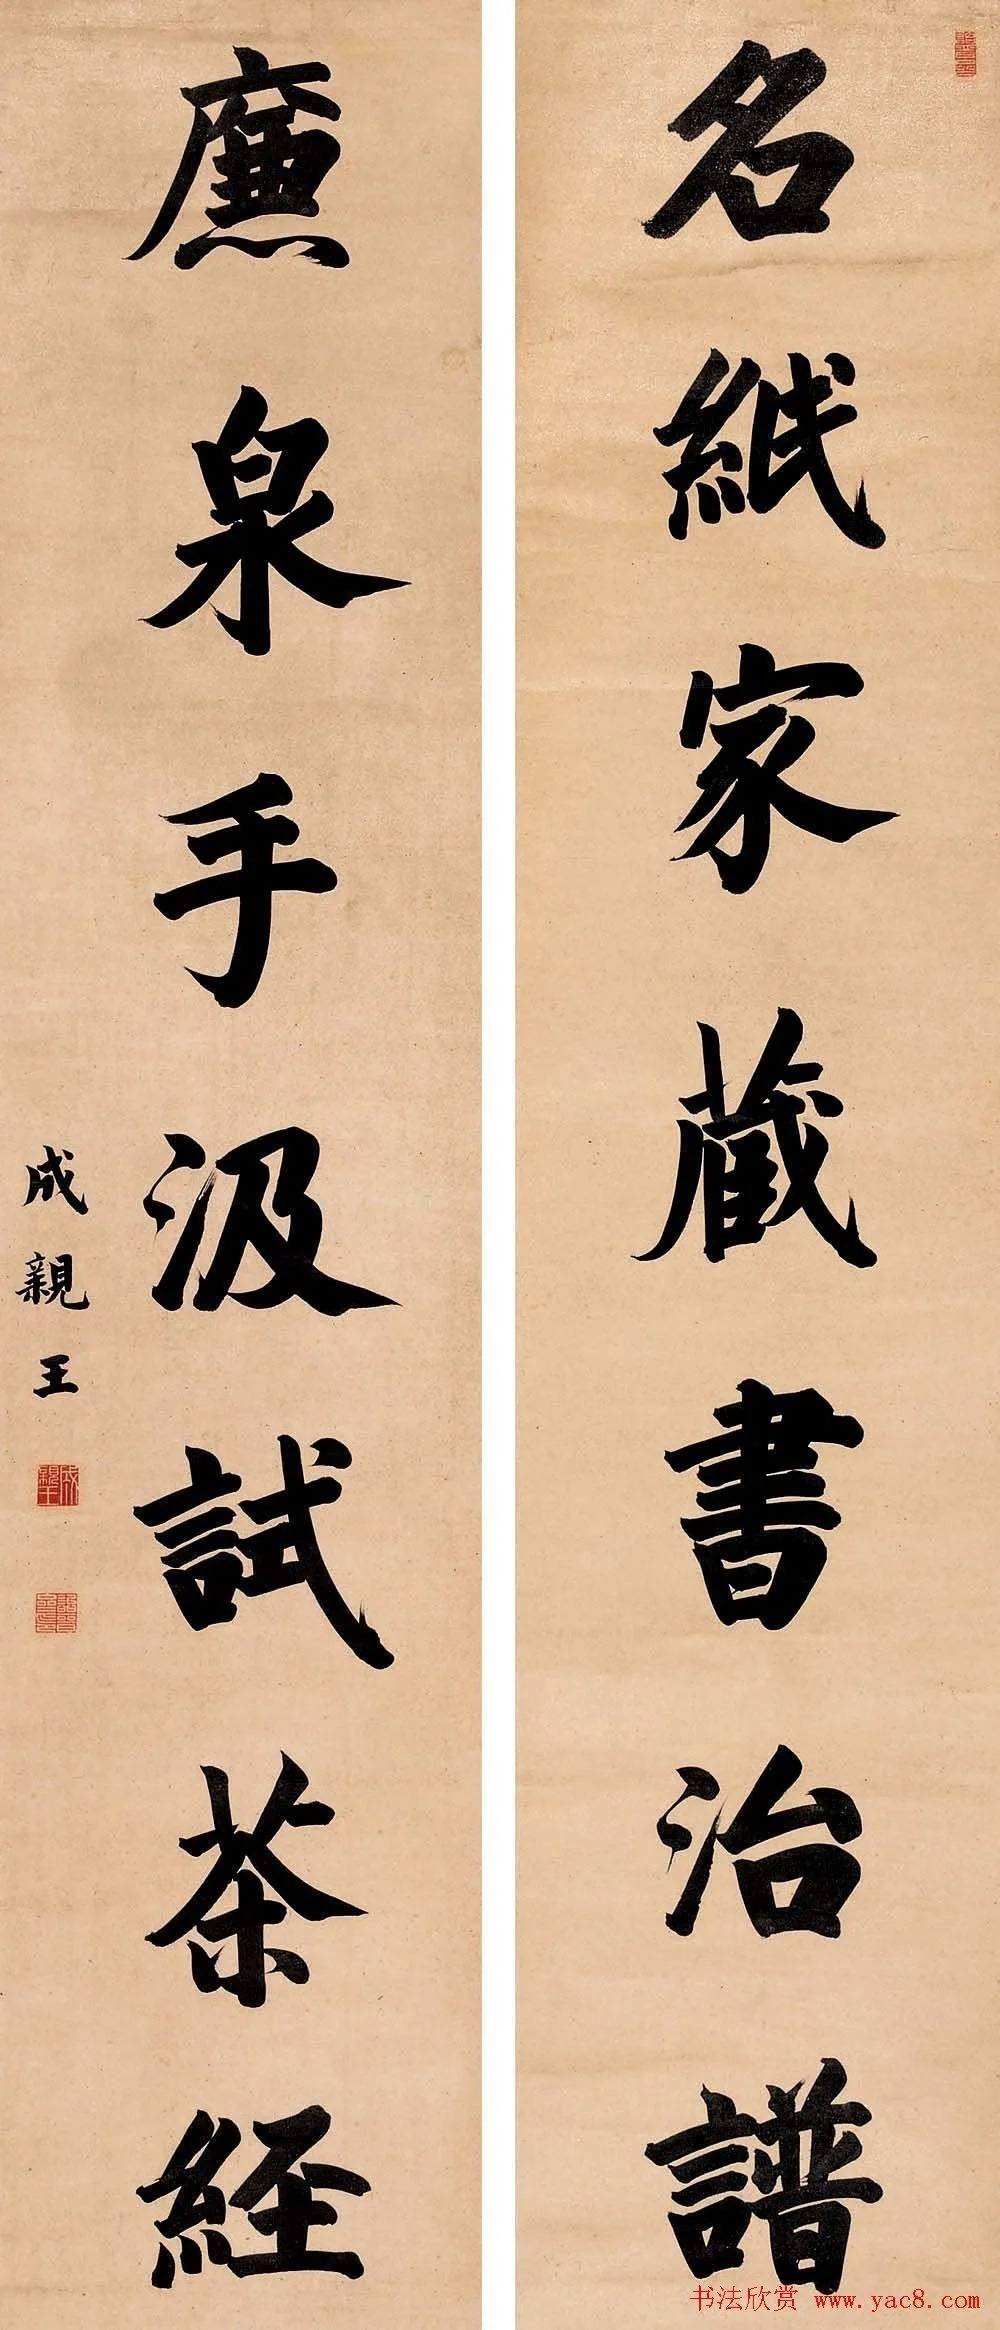 名紙家藏書治譜
廉泉手汲試茶經
成親王
成親王
书法欣赏 www.yac8.com